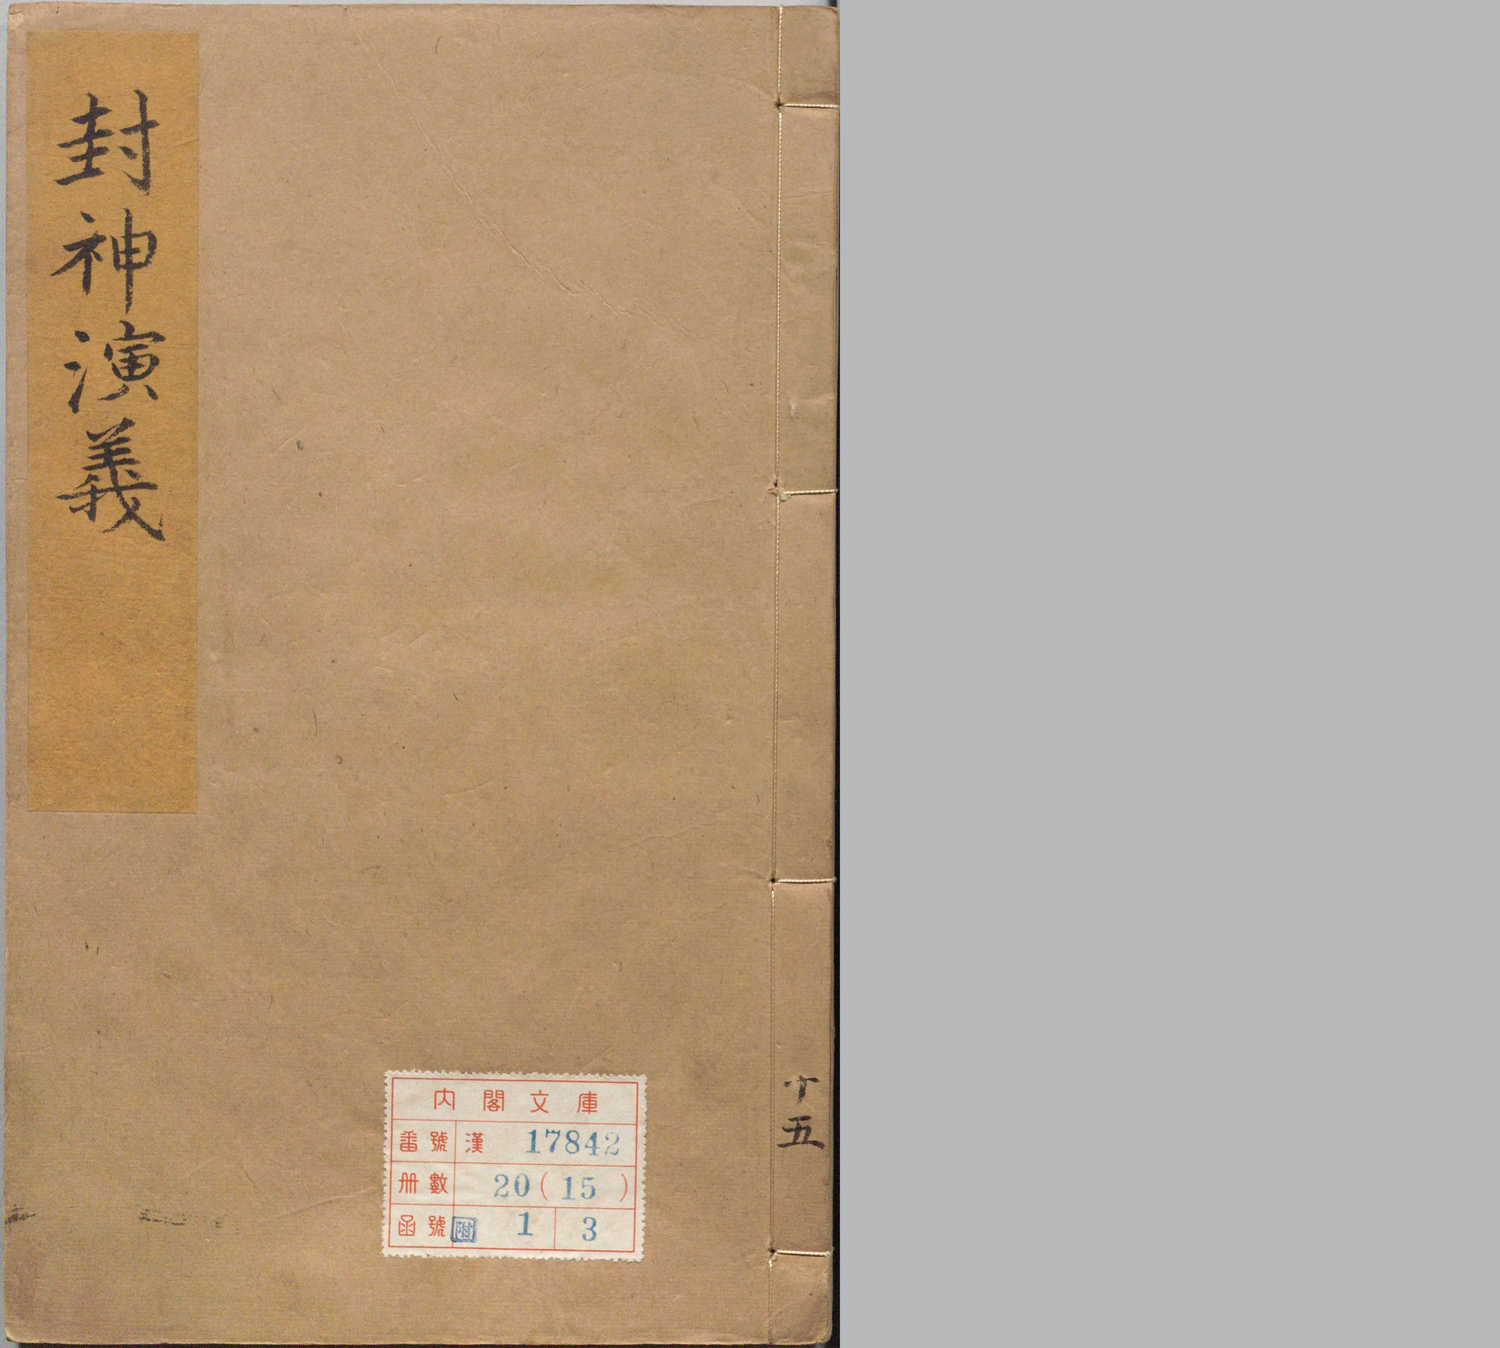 封神演義
十五
内閣文庫
番號 漢 17842
册數 20(15)
函號 附 1 3